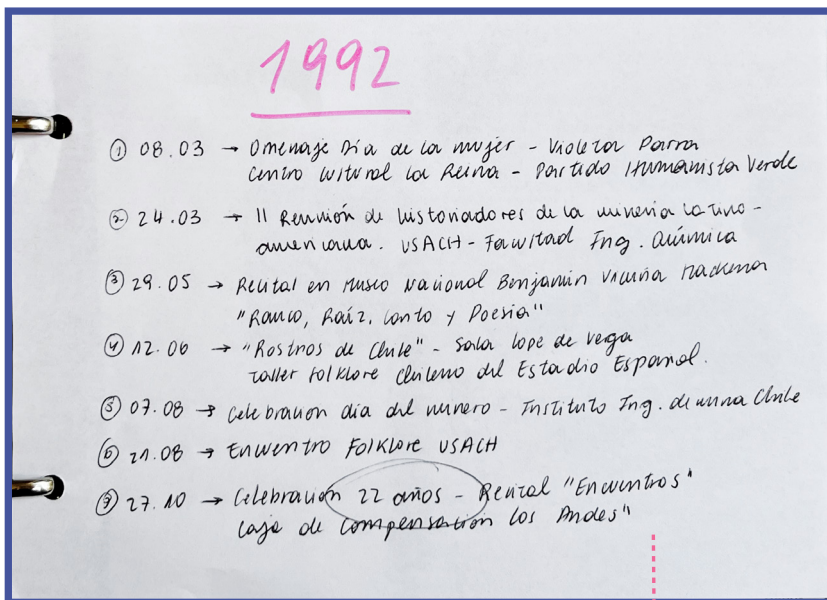 1992
① 08.03 → Omenaje Día de la mujer - Violeta Parra
Centro Cultural La Reina - Partido Humanista Verde
② 24.03 → II Reunión de historiadores de la minería Latino-
americana. USACH - Facultad Ing. Química
③ 29.05 → Recital en Museo Nacional Benjamin Vicuña Mackenna
"Rauco, Raíz, Canto y Poesía"
④ 12.06 → "Rostros de Chile" - Sala Lope de Vega
Taller Folklore Chileno del Estadio Español.
⑤ 07.08 → Celebración día del minero - Instituto Ing. de mina Chile
⑥ 21.08 → Encuentro Folklore USACH
⑦ 27.10 → Celebración 22 años - Recital "Encuentros"
Caja de Compensación Los Andes"